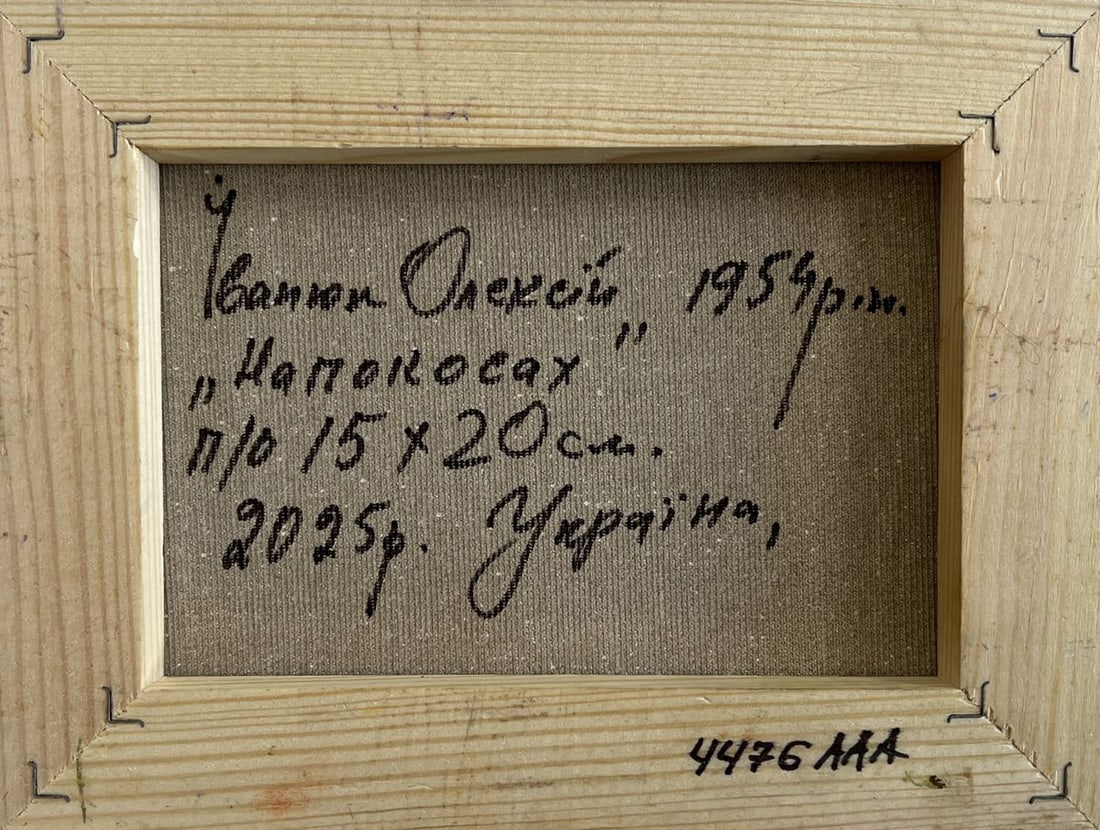 Іванюк Олексій 1954р.н.
„Напокосах"
п/о 15 х 20 см.
2025р. Україна,
4476 ААА